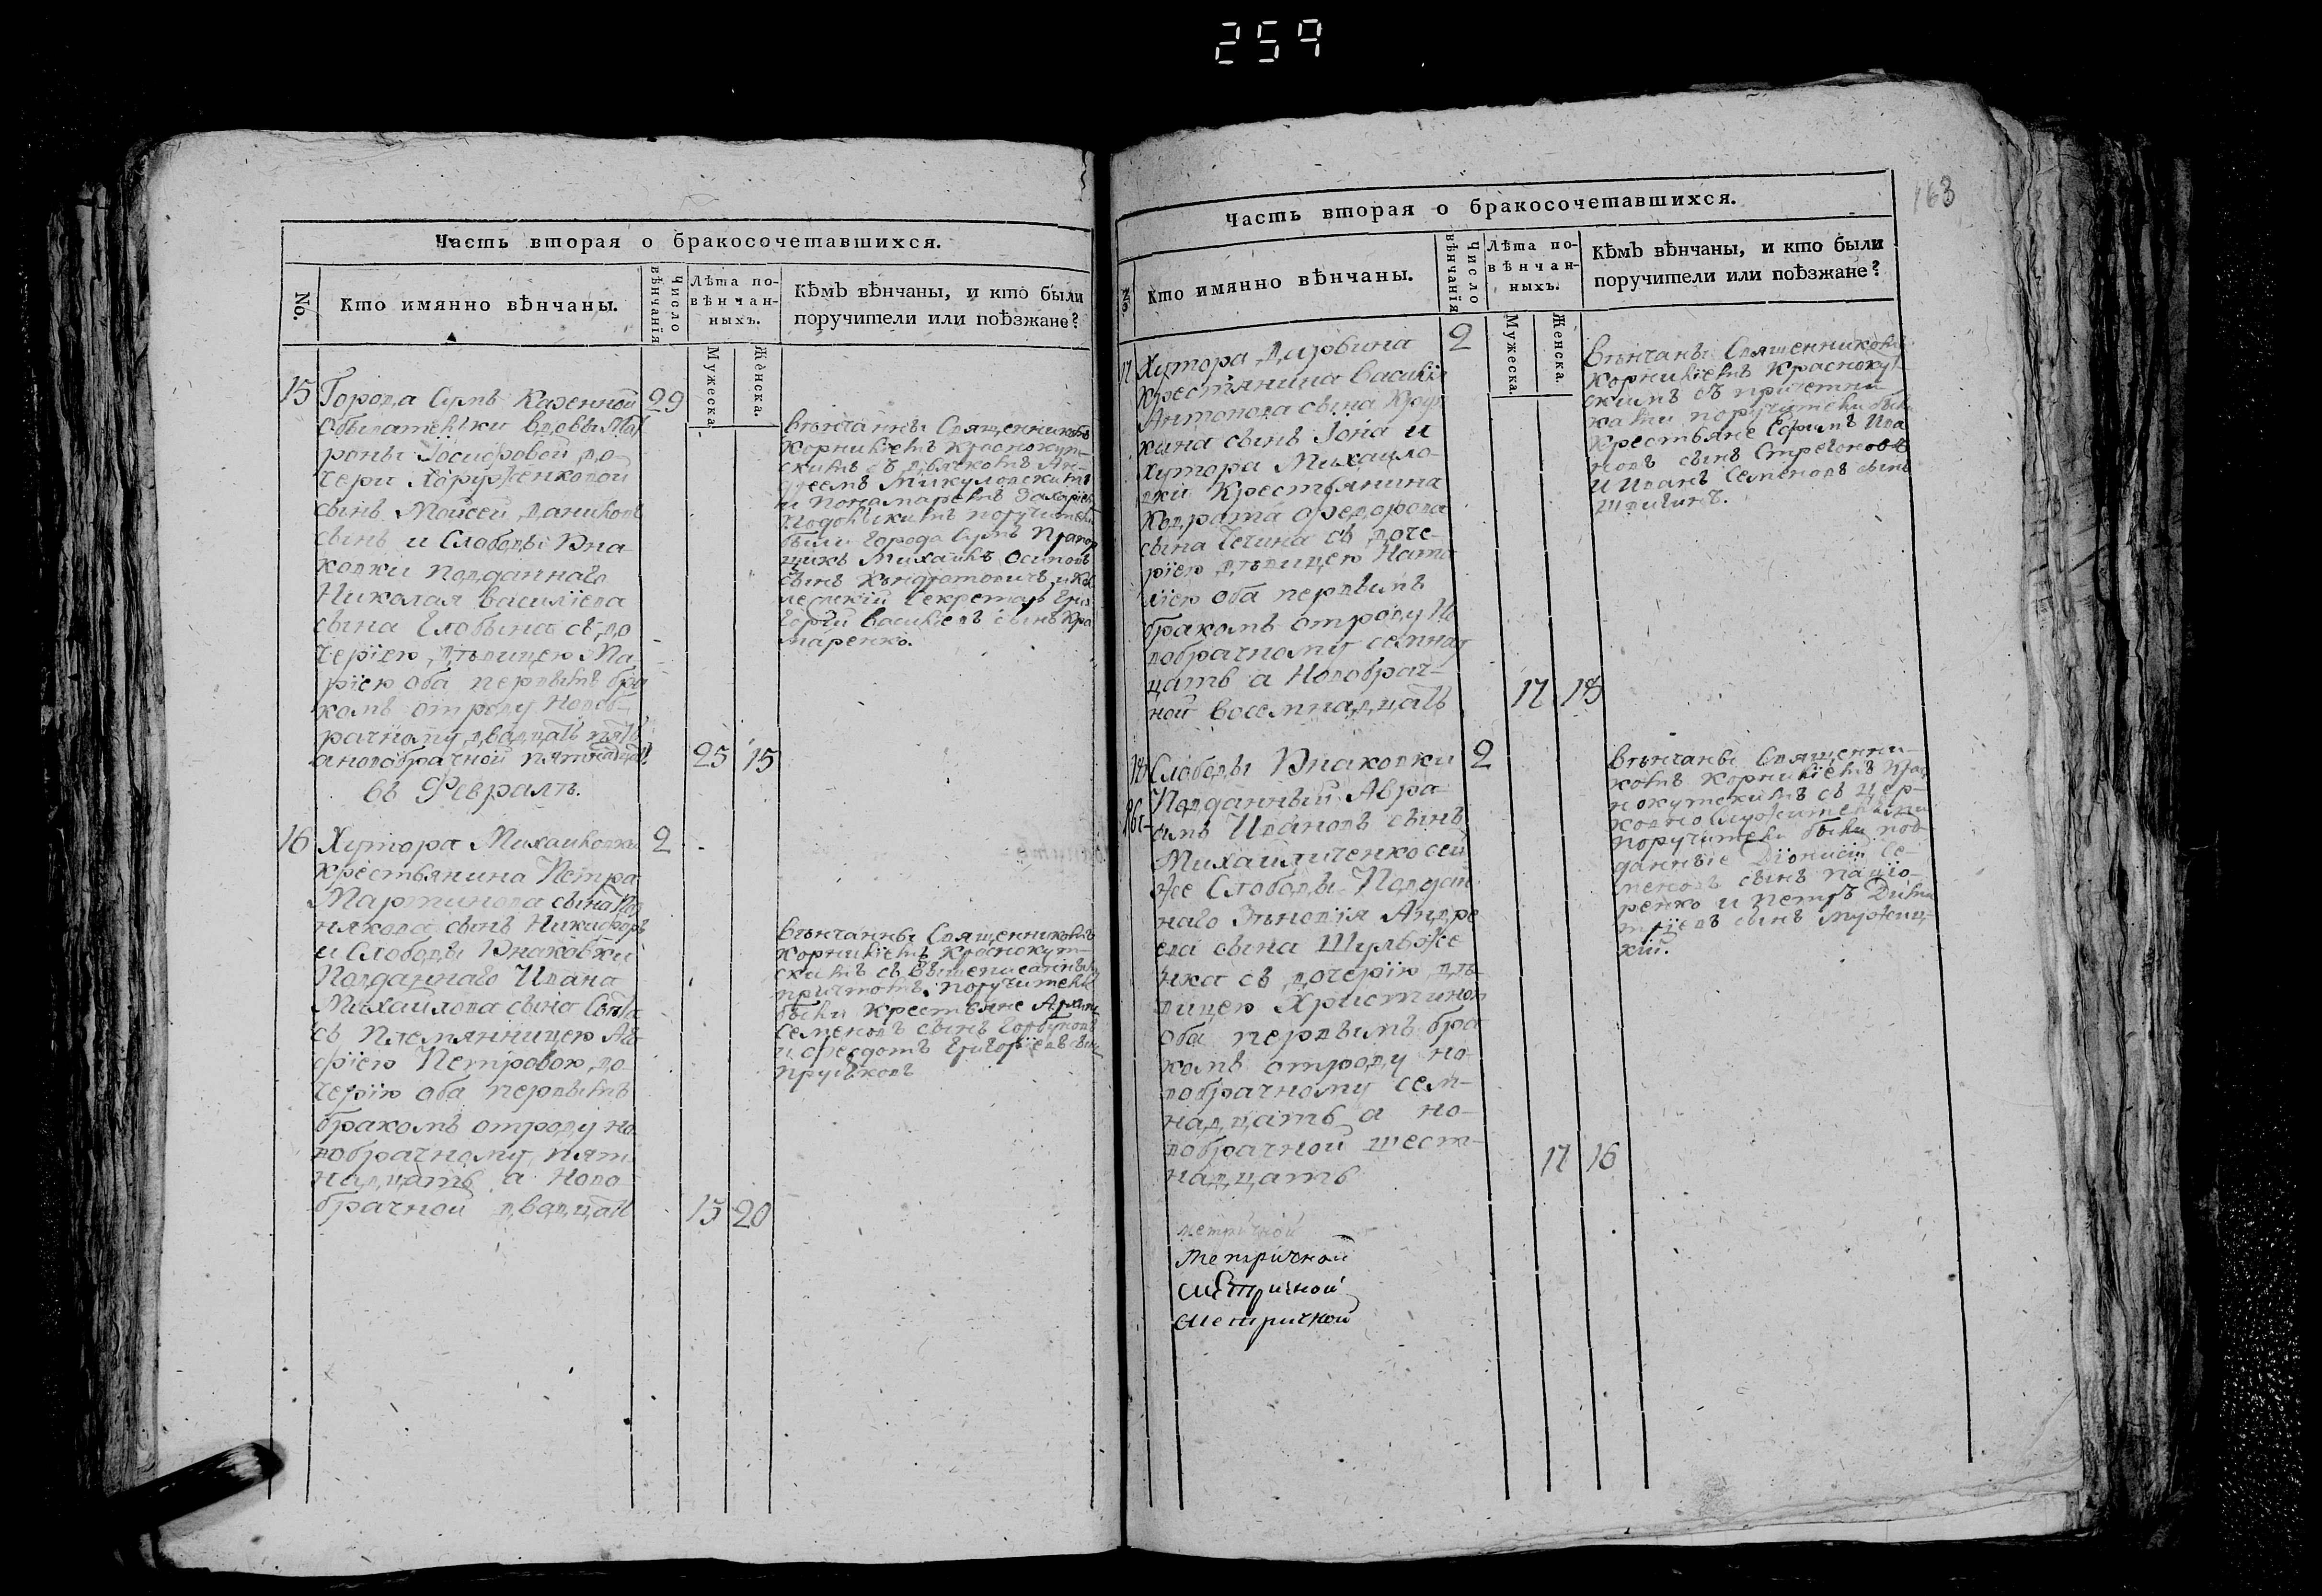 259
Часть вторая о бракосочетавшихся.
No.
Кто имянно вѣнчаны.
Число вѣнчанія
Лѣта по-
вѣнчан-
ныхъ.
Мужеска.
Женска.
Кѣмъ вѣнчаны, и кто были
поручители или поѣзжане?
15 Города Сумъ Казенной 29
Обывателки вдовы Мат
роны Іосифовой до-
чери Хоруженковой
сынъ Моѵсей Даниловъ
сынъ и Слободы
подданнаго
Николая Василіева
сына съ до
черію дѣвицею Ма
рією оба первымъ бра
комъ отроду новоб-
рачному двадцать пять
а новобрачной пятнадцать 25 15
вѣнчанны Священникомъ
Корниліемъ Краснокут-
скимъ съ дьячкомъ Ан-
дреемъ Микуловскимъ
и понамаремъ Захаріемъ
поручители
были города Сумъ Прапор
щикъ Михаилъ Осиповъ
сынъ Кондратовичъ и Кол
лежскій Секретарь Григ
горій Василіевъ сынъ Кра
маренко.
въ Февралѣ.
16 Хутора Михайловки 2
крестьянина Петра
Мартинова сына
сынъ Никифоръ
и Слободы
Подданнаго Ивана
Михайлова сына
съ племянницею Ага
фією Петровою до
черію оба первымъ
бракомъ отроду но
вобрачному пят
надцать а ново
брачной двадцать 15 20
вѣнчанны Священникомъ
Корниліемъ Краснокут-
скимъ съ вышеписаннымъ
причтомъ, поручители
были крестьяне
Семеновъ сынъ Горбуновъ
и Федотъ Григоріевъ сынъ
163
Часть вторая о бракосочетавшихся.
No.
Кто имянно вѣнчаны.
Число вѣнчанія
Лѣта по-
вѣнчан-
ныхъ.
Мужеска.
Женска.
Кѣмъ вѣнчаны, и кто были
поручители или поѣзжане?
17 Хутора Дарвина 2
крестьянина Василія
Антонова сына
сынъ Іона и
хутора Михайло-
вки Крестьянина
Федорова
сына Чечина съ доче-
рію дѣвицею Ната
лією оба первымъ
бракомъ отроду но
вобрачному семнад
цать а новобрач-
ной восемнадцать 17 18
вѣнчаны Священникомъ
Корниліемъ Краснокут
скимъ съ причетни
ками поручители были
Крестьяне Ефимъ Ива
новъ сынъ
и Иванъ Семеновъ сынъ
18 Слободы 2
Подданный Авра
амъ Ивановъ сынъ
Михайличенко сей
же Слободы Поддан
наго Зѣновія Андре
ева сына Шульже
нка съ дочерію дѣ-
вицею Христиною
оба первымъ бра
комъ отроду но-
вобрачному сем-
надцать а но-
вобрачной шест-
надцать 17 16
Вѣнчаны Священни-
комъ Корниліемъ Крас
нокутскимъ съ цер-
ковнослужителями
поручители были под
данные Діонисій Се-
меновъ сынъ
и Петръ Дими
тріевъ сынъ
метричной
метричной
метричной
метричной